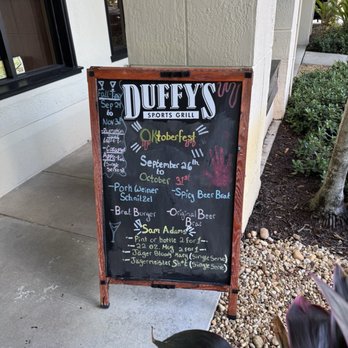 DUFFY'S
SPORTS GRILL
Oktoberfest
September 26th
to
October 31st
-Pork Weiner Schnitzel
-Spicy Beer Brat
-Brat Burger
-Original Beer Brat
Sam Adams
-Pint or bottle 2 for 1-
-22 oz. Mug 2 for 1-
-Jager Bloody Mary (Single Serve)
-Jagermeister Shot (Single Serve)
Sep 26
to
Nov 30